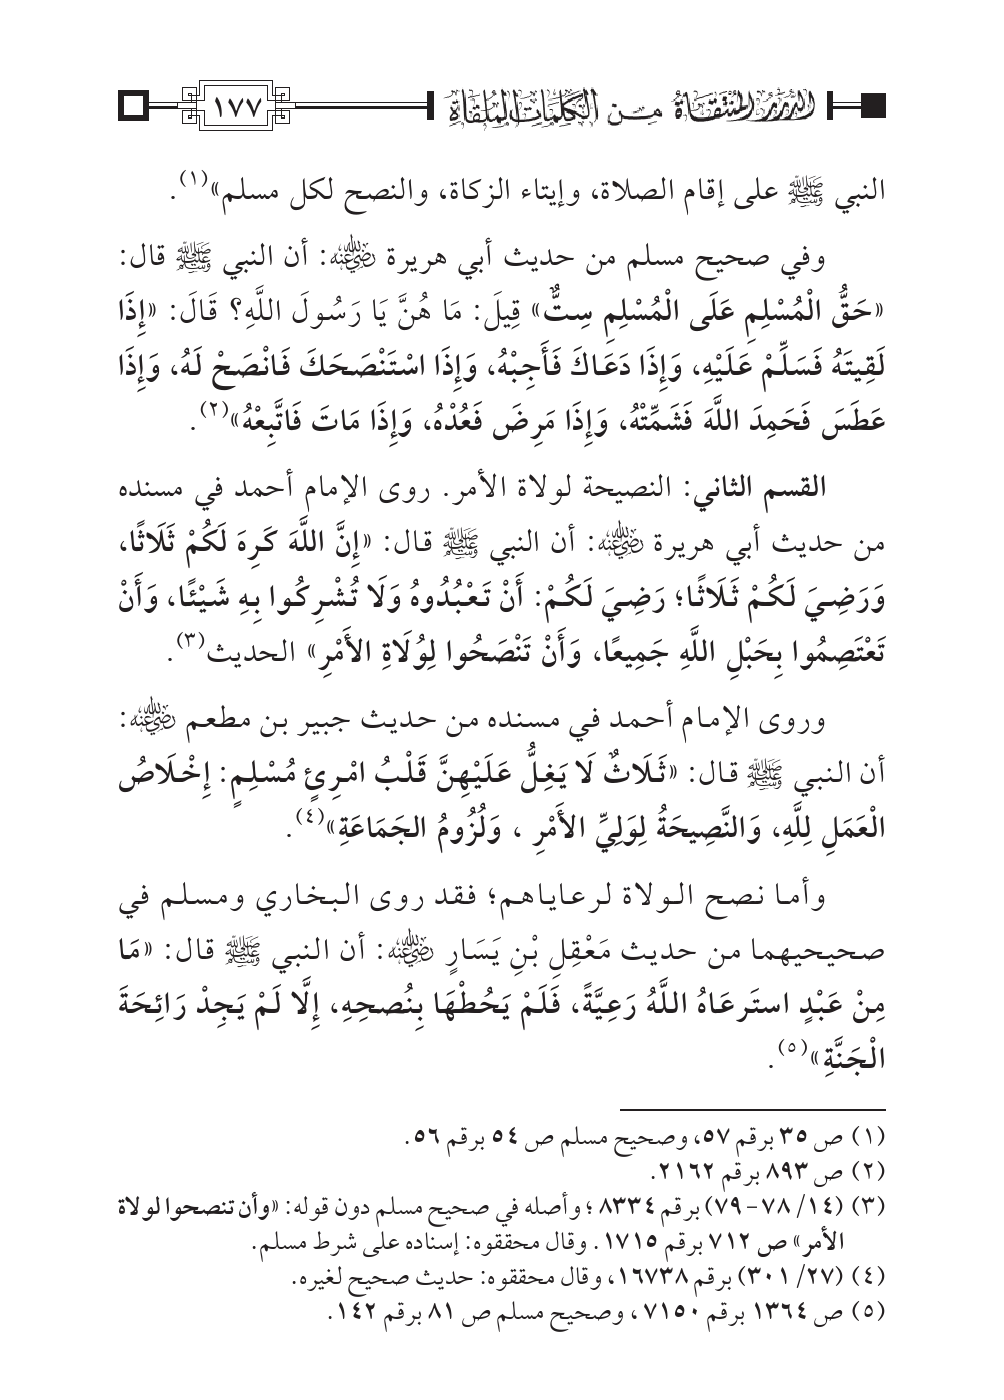 الدرر المنتقاة من الكلمات الملقاة
١٧٧
النبي ﷺ على إقام الصلاة، وإيتاء الزكاة، والنصح لكل مسلم»(١).
وفي صحيح مسلم من حديث أبي هريرة رضي الله عنه: أن النبي ﷺ قال:
«حَقُّ الْمُسْلِمِ عَلَى الْمُسْلِمِ سِتٌّ» قِيلَ: مَا هُنَّ يَا رَسُولَ اللَّهِ؟ قَالَ: «إِذَا
لَقِيتَهُ فَسَلِّمْ عَلَيْهِ، وَإِذَا دَعَاكَ فَأَجِبْهُ، وَإِذَا اسْتَنْصَحَكَ فَانْصَحْ لَهُ، وَإِذَا
عَطَسَ فَحَمِدَ اللَّهَ فَشَمِّتْهُ، وَإِذَا مَرِضَ فَعُدْهُ، وَإِذَا مَاتَ فَاتَّبِعْهُ»(٢).
القسم الثاني: النصيحة لولاة الأمر. روى الإمام أحمد في مسنده
من حديث أبي هريرة رضي الله عنه: أن النبي ﷺ قال: «إِنَّ اللَّهَ كَرِهَ لَكُمْ ثَلَاثًا،
وَرَضِيَ لَكُمْ ثَلَاثًا؛ رَضِيَ لَكُمْ: أَنْ تَعْبُدُوهُ وَلَا تُشْرِكُوا بِهِ شَيْئًا، وَأَنْ
تَعْتَصِمُوا بِحَبْلِ اللَّهِ جَمِيعًا، وَأَنْ تَنْصَحُوا لِوُلَاةِ الأَمْرِ» الحديث(٣).
وروى الإمام أحمد في مسنده من حديث جبير بن مطعم رضي الله عنه:
أن النبي ﷺ قال: «ثَلَاثٌ لَا يَغِلُّ عَلَيْهِنَّ قَلْبُ امْرِئٍ مُسْلِمٍ: إِخْلَاصُ
الْعَمَلِ لِلَّهِ، وَالنَّصِيحَةُ لِوَلِيِّ الأَمْرِ ، وَلُزُومُ الجَمَاعَةِ»(٤).
وأما نصح الولاة لرعاياهم؛ فقد روى البخاري ومسلم في
صحيحيهما من حديث مَعْقِلِ بْنِ يَسَارٍ رضي الله عنه: أن النبي ﷺ قال: «مَا
مِنْ عَبْدٍ استَرعَاهُ اللَّهُ رَعِيَّةً، فَلَمْ يَحُطْهَا بِنُصحِهِ، إِلَّا لَمْ يَجِدْ رَائِحَةَ
الْجَنَّةِ»(٥).
(١) ص ٣٥ برقم ٥٧، وصحيح مسلم ص ٥٤ برقم ٥٦.
(٢) ص ٨٩٣ برقم ٢١٦٢.
(٣) (١٤/ ٧٨-٧٩) برقم ٨٣٣٤ ؛ وأصله في صحيح مسلم دون قوله: «وأن تنصحوا لولاة
الأمر» ص ٧١٢ برقم ١٧١٥. وقال محققوه: إسناده على شرط مسلم.
(٤) (٢٧/ ٣٠١) برقم ١٦٧٣٨، وقال محققوه: حديث صحيح لغيره.
(٥) ص ١٣٦٤ برقم ٧١٥٠، وصحيح مسلم ص ٨١ برقم ١٤٢.